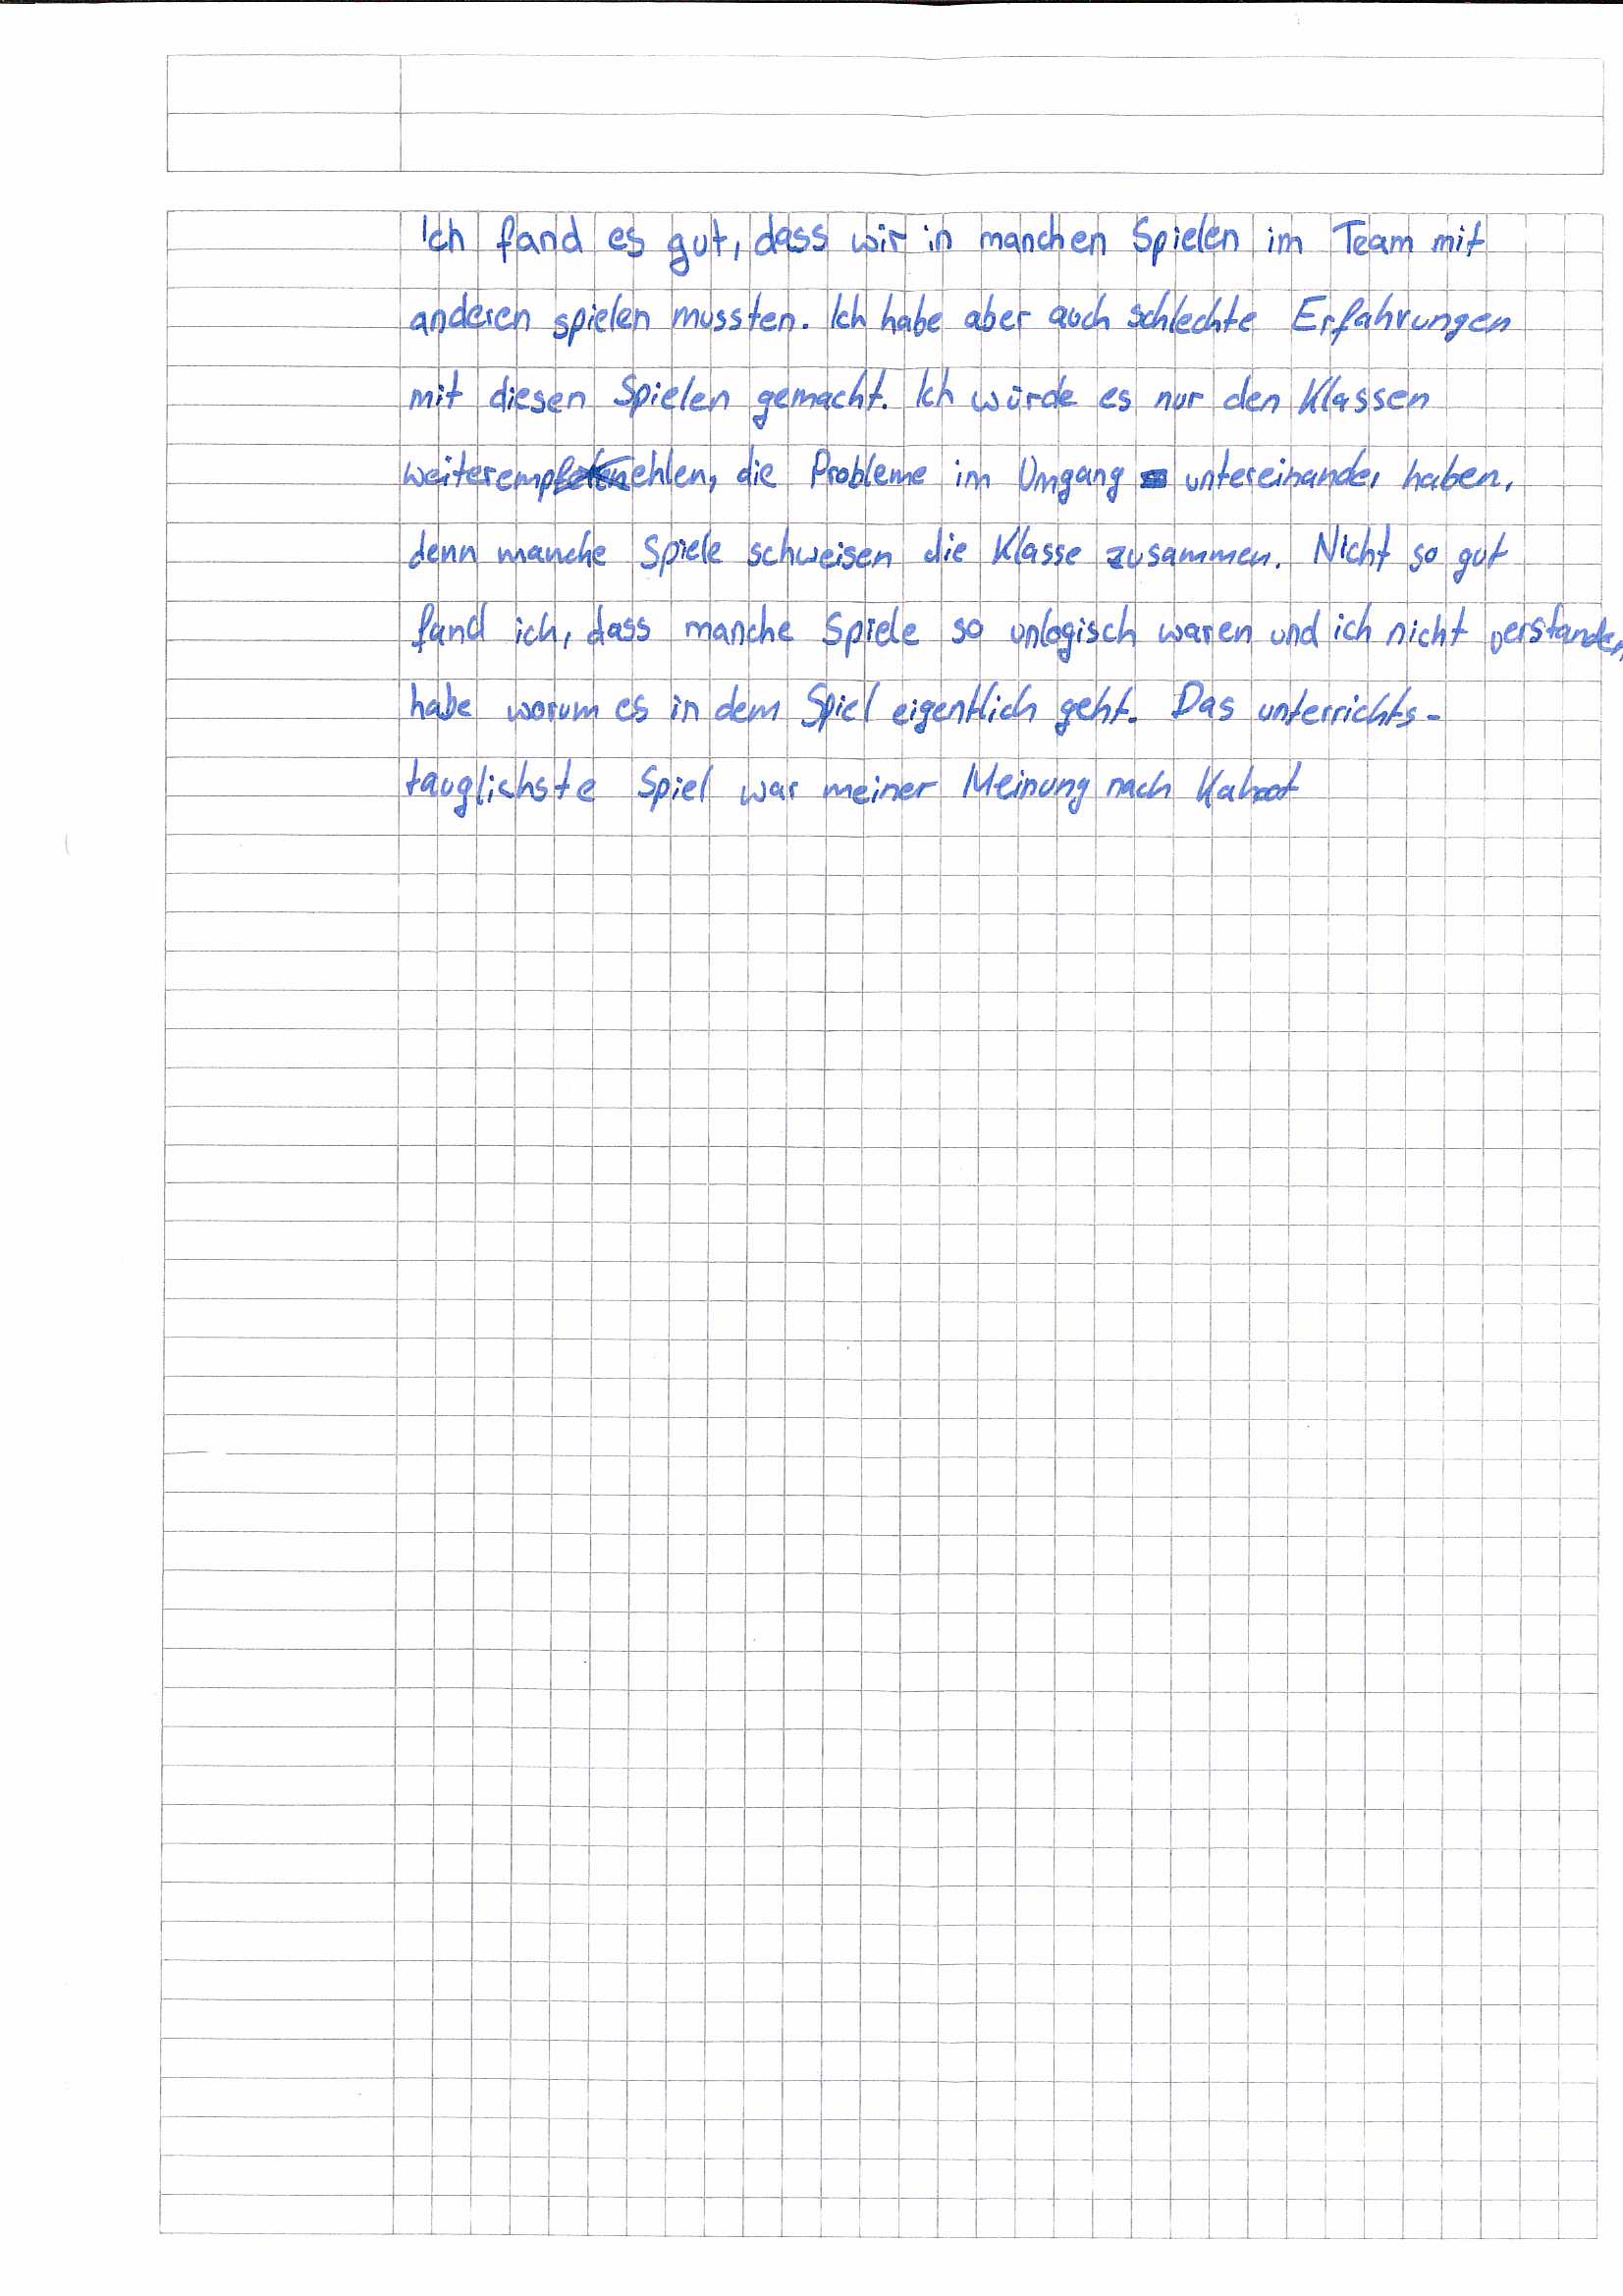 Ich fand es gut, dass wir in manchen Spielen im Team mit
anderen spielen mussten. Ich habe aber auch schlechte Erfahrungen
mit diesen Spielen gemacht. Ich würde es nur den Klassen
weiterempfehlen, die Probleme im Umgang untereinander haben,
denn manche Spiele schweisen die Klasse zusammen. Nicht so gut
fand ich, dass manche Spiele so unlogisch waren und ich nicht verstanden
habe worum es in dem Spiel eigentlich geht. Das unterrichts-
tauglichste Spiel war meiner Meinung nach Kahoot